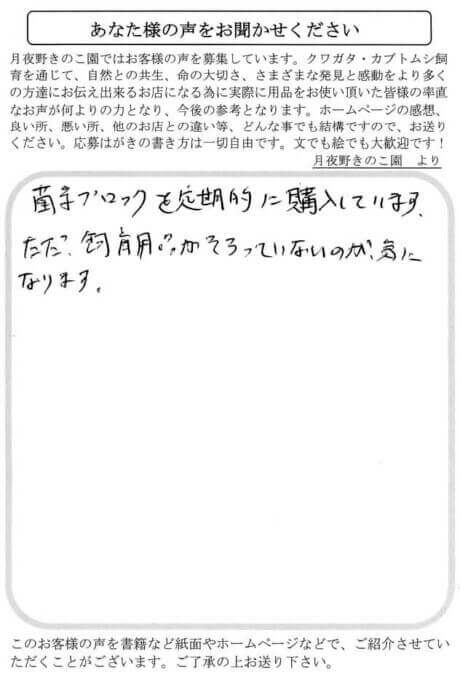 あなた様の声をお聞かせください
月夜野きのこ園ではお客様の声を募集しています。クワガタ・カブトムシ飼
育を通じて、自然との共生、命の大切さ、さまざまな発見と感動をより多く
の方達にお伝え出来るお店になる為に実際に用品をお使い頂いた皆様の率直
なお声が何よりの力となり、今後の参考となります。ホームページの感想、
良い所、悪い所、他のお店との違い等、どんな事でも結構ですので、お送り
ください。応募はがきの書き方は一切自由です。文でも絵でも大歓迎です！
月夜野きのこ園　より
菌床ブロックを定期的に購入しています。
ただ、飼育用品がそろっていないのが、気に
なります。
このお客様の声を書籍など紙面やホームページなどで、ご紹介させてい
ただくことがございます。ご了承の上お送り下さい。